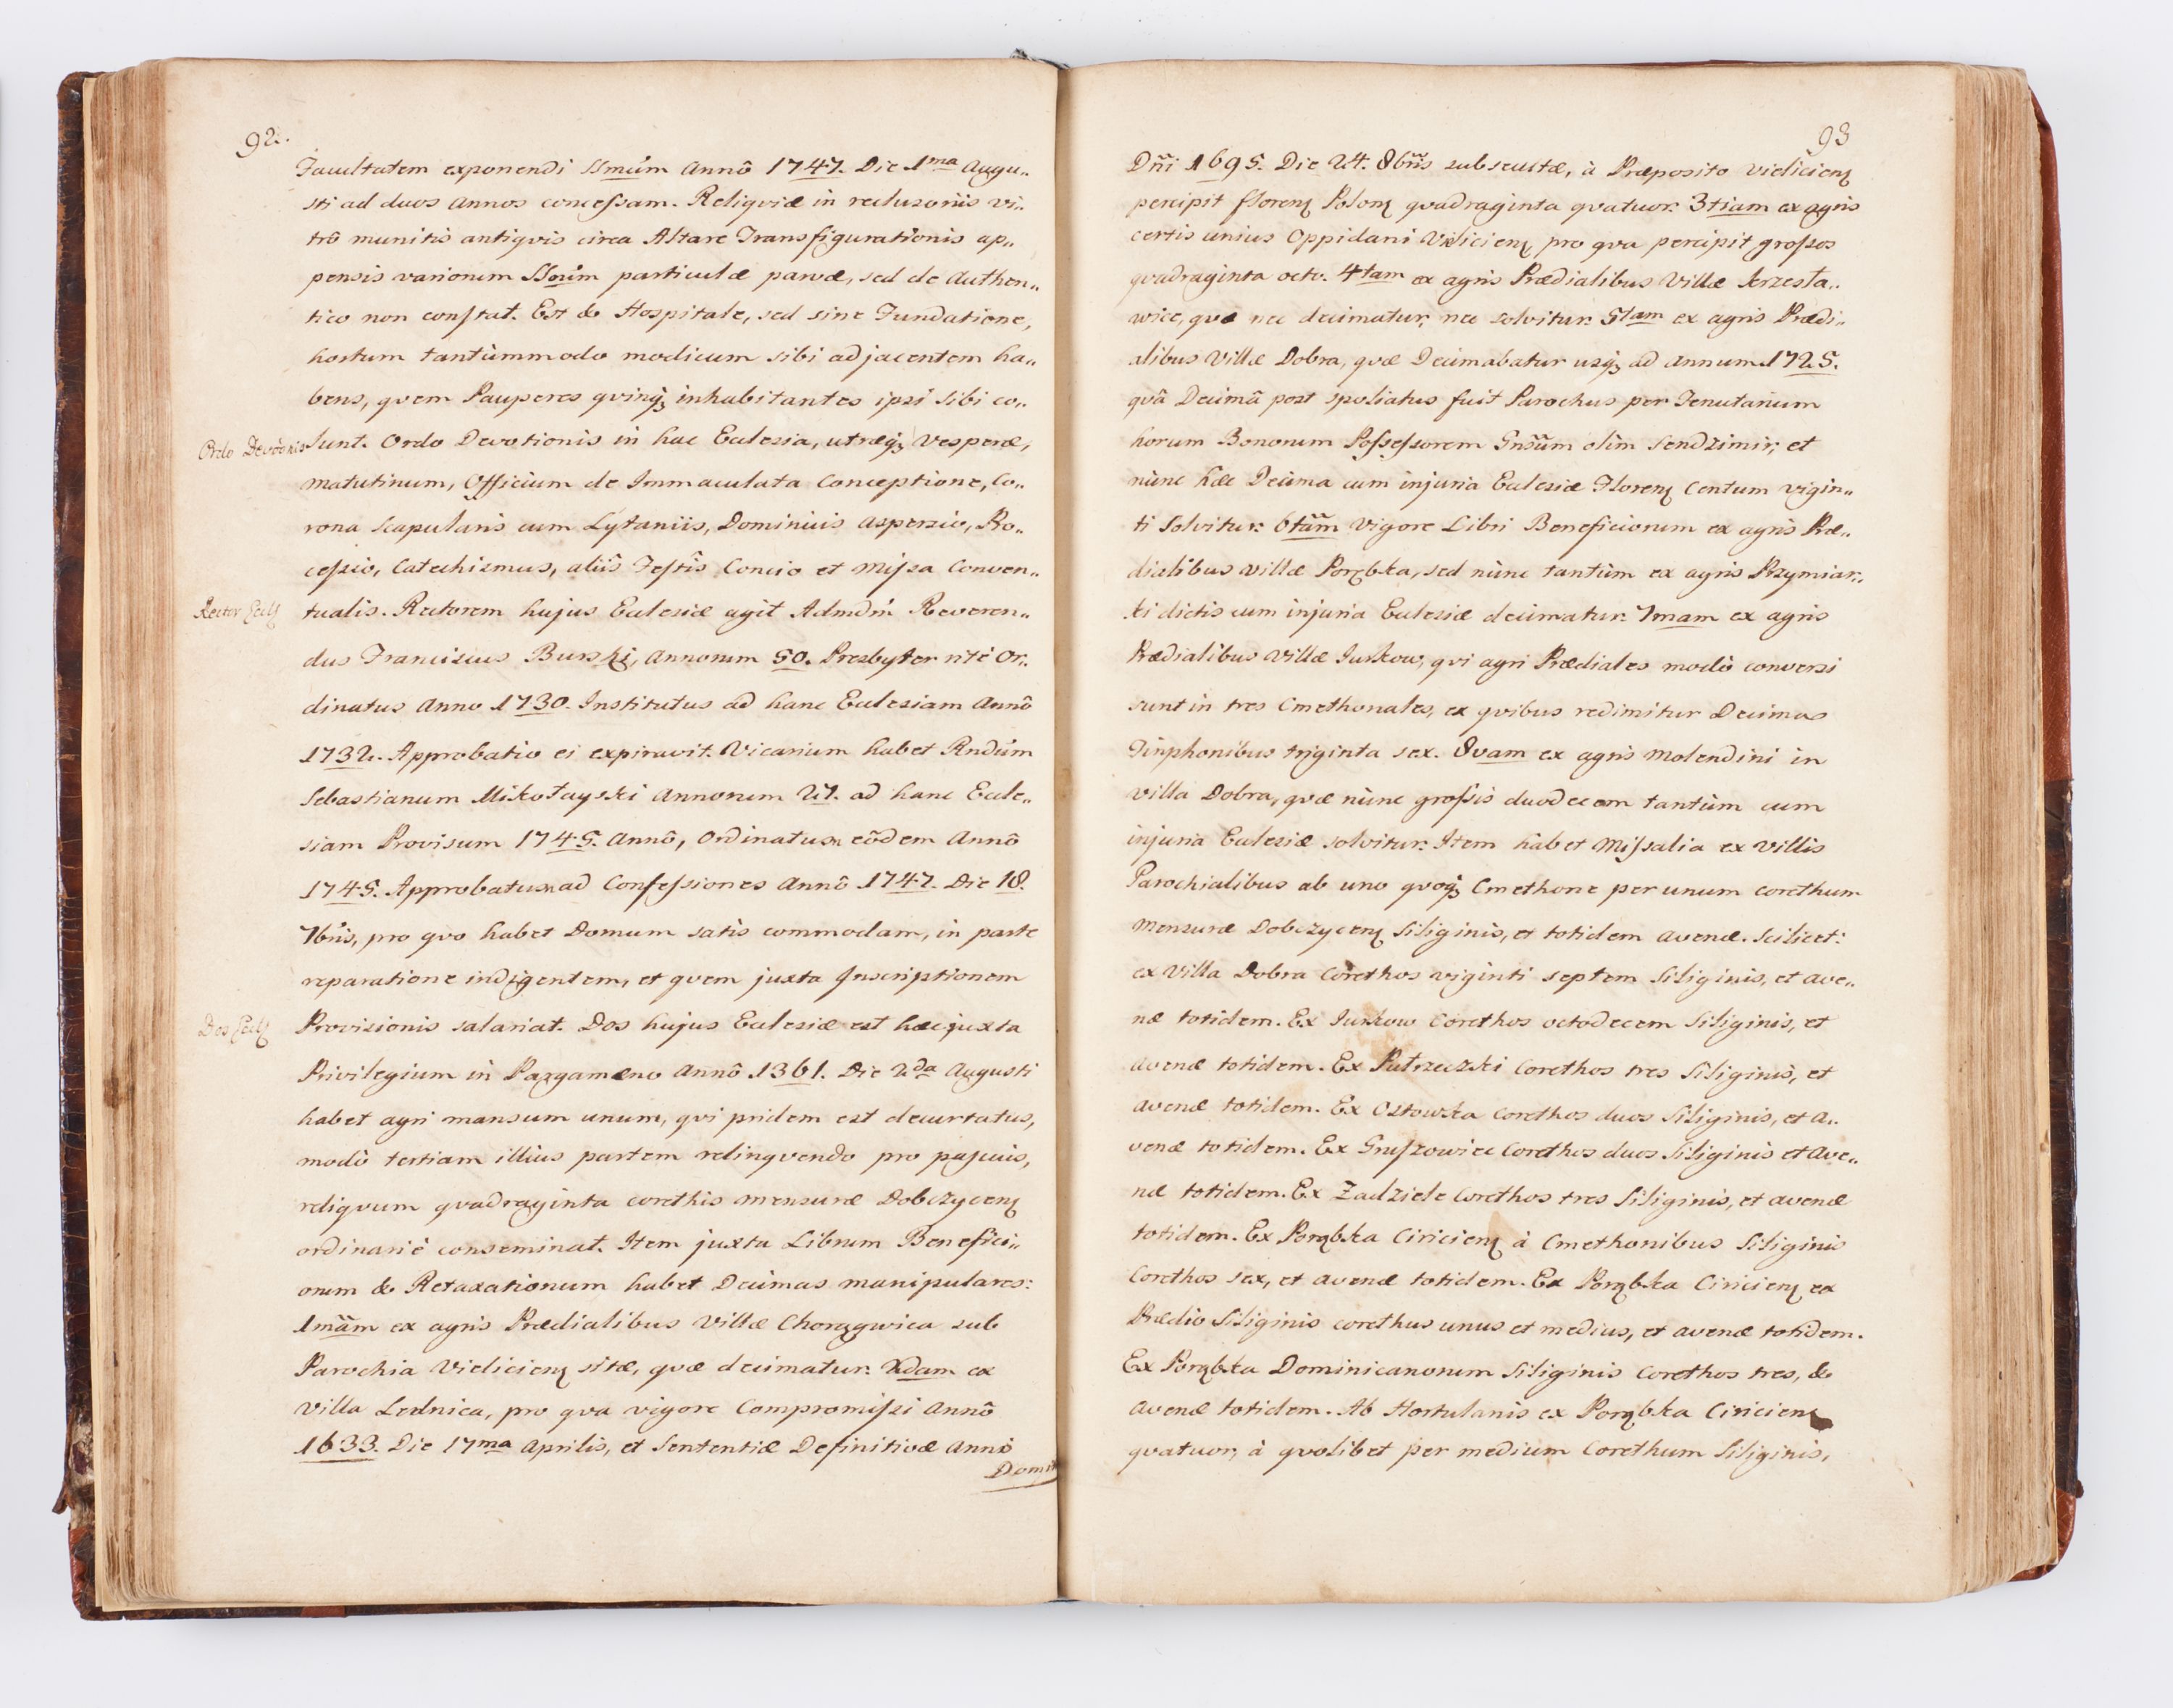 92.
Facultatem exponendi SSmũm Annô 1747. Die 1ma Augu„
sti ad duos Annos concessam. Reliqviæ in reclusoriis vi„
trô munitis antiqvis circa Altare Transfigurationis ap„
pensis variorum SSrũm particulæ parvæ, sed de Authen„
tico non constat. Est & Hospitale, sed sine Fundatione,
hortum tantùmmodo modicum sibi adjacentem ha„
bens, qvem Pauperes qvinqȝ inhabitantes ipsi sibi co„
Ordo Devõnis
lunt. Ordo Devotionis in hac Ecclesia, utræqȝ Vesperæ,
Matutinum, Officium de Immaculata Conceptione, Co„
rona Scapularis cum Lytaniis, Dominicis Aspersio, Pro„
cessio, Catechismus, aliîs Festîs Concio et Missa Conven„
Rector Eccl
tualis. Rectorem hujus Ecclesiæ agit Admdm̃ Reveren„
dus Franciscus Burski, Annorum 50. Presbyter ritè Or„
dinatus Anno 1730. Institutus ad hanc Ecclesiam Annô
1732. Approbatio ei expiravit. Vicarium habet Rndũm
Sebastianum Mikołayski Annorum 27. ad hanc Eccle„
siam Provisum 1745. Annô, Ordinatum eôdem Annô
1745. Approbatum ad Confessiones Annô 1747. Die 18.
7bris, pro qvo habet Domum satis commodam, in parte
reparatione indigentem, et qvem juxta Inscriptionem
Dos Eccl
Provisionis salariat. Dos hujus Ecclesiæ est hæc juxta
Privilegium in Pargameno Annô 1361. Die 2da Augusti
habet agri mansum unum, qvi pridem est decurtatus,
modò tertiam illius partem relinqvendo pro pascuis,
reliqvum qvadraginta corethis mensuræ Dobczycenȝ
ordinariè conseminat. Item juxta Librum Benefici„
orum & Retaxationum habet Decimas manipulares:
1mãm ex agris Prædialibus Villæ Chorągwica sub
Parochia Vieliciens sitæ, qvæ decimatur. 2dam ex
Villa Lednica, pro qva vigore Compromissi Annô
1633. Die 17ma Aprilis, et Sententiæ Definitivæ Annô
Domini
93
Dñi 1695. Die 24. 8bris subsecutæ, à Præposito Vieliciens
percipit florenȝ Polonȝ qvadraginta qvatuor. 3tiam ex agris
certis unius Oppidani Vieliciens pro qva percipit grossos
qvadraginta octo. 4tam ex agris Prædialibus Villæ Krzesła„
wice, qvæ nec decimatur, nec solvitur. 5tam ex agris Prædi„
alibus Villæ Dobra, qvæ Decimabatur usqȝ ad Annum 1725.
qvâ Decimâ post spoliatus fuit Parochus per Tenutarium
horum Bonorum Possessorem Gnsũm olim Sendzimir; et
nùnc hæc Decima cum injuria Ecclesiæ Florenȝ Centum vigin„
ti solvitur. 6tãm Vigore Libri Beneficiorum ex agris Præ„
dialibus Villæ Porąbka, sed nùnc tantùm ex agris Przymiar„
ki dictis cum injuria Ecclesiæ decimatur. 7mam ex agris
Prædialibus Villæ Jurkow, qvi agri Prædiales modò conversi
sunt in tres Cmethonales, ex qvibus redimitur Decimas
Tinphonibus triginta sex. 8vam ex agris Molendini in
Villa Dobra, qvæ nùnc grossis duodecem tantùm cum
injuria Ecclesiæ solvitur. Item habet Missalia ex Villis
Parochialibus ab uno qvoqȝ Cmethone per unum corethum
Mensuræ Dobczycenȝ Siliginis, et totidem avenæ. Scilicet:
ex Villa Dobra Corethos viginti septem Siliginis, et ave„
næ totidem. Ex Jurkow Corethos octodecem Siliginis, et
avenæ totidem. Ex Pułrzeczki Corethos tres Siliginis, et
avenæ totidem. Ex Ostowska Corethos duos Siliginis, et a„
venæ totidem. Ex Gruszowiec Corethos duos Siliginis et Ave„
næ totidem. Ex Zadziele Corethos tres Siliginis, et avenæ
totidem. Ex Porąbka Ciriciens à Cmethonibus Siliginis
Corethos sex, et avenæ totidem. Ex Porąbka Ciriciens ex
Prædio Siliginis corethus unus et medius, et avenæ totidem.
Ex Porąbka Dominicanorum Siliginis Corethos tres, &
avenæ totidem. Ab Hortulanis ex Porąbka Ciriciens
qvatuor, à qvolibet per medium Corethum Siliginis,